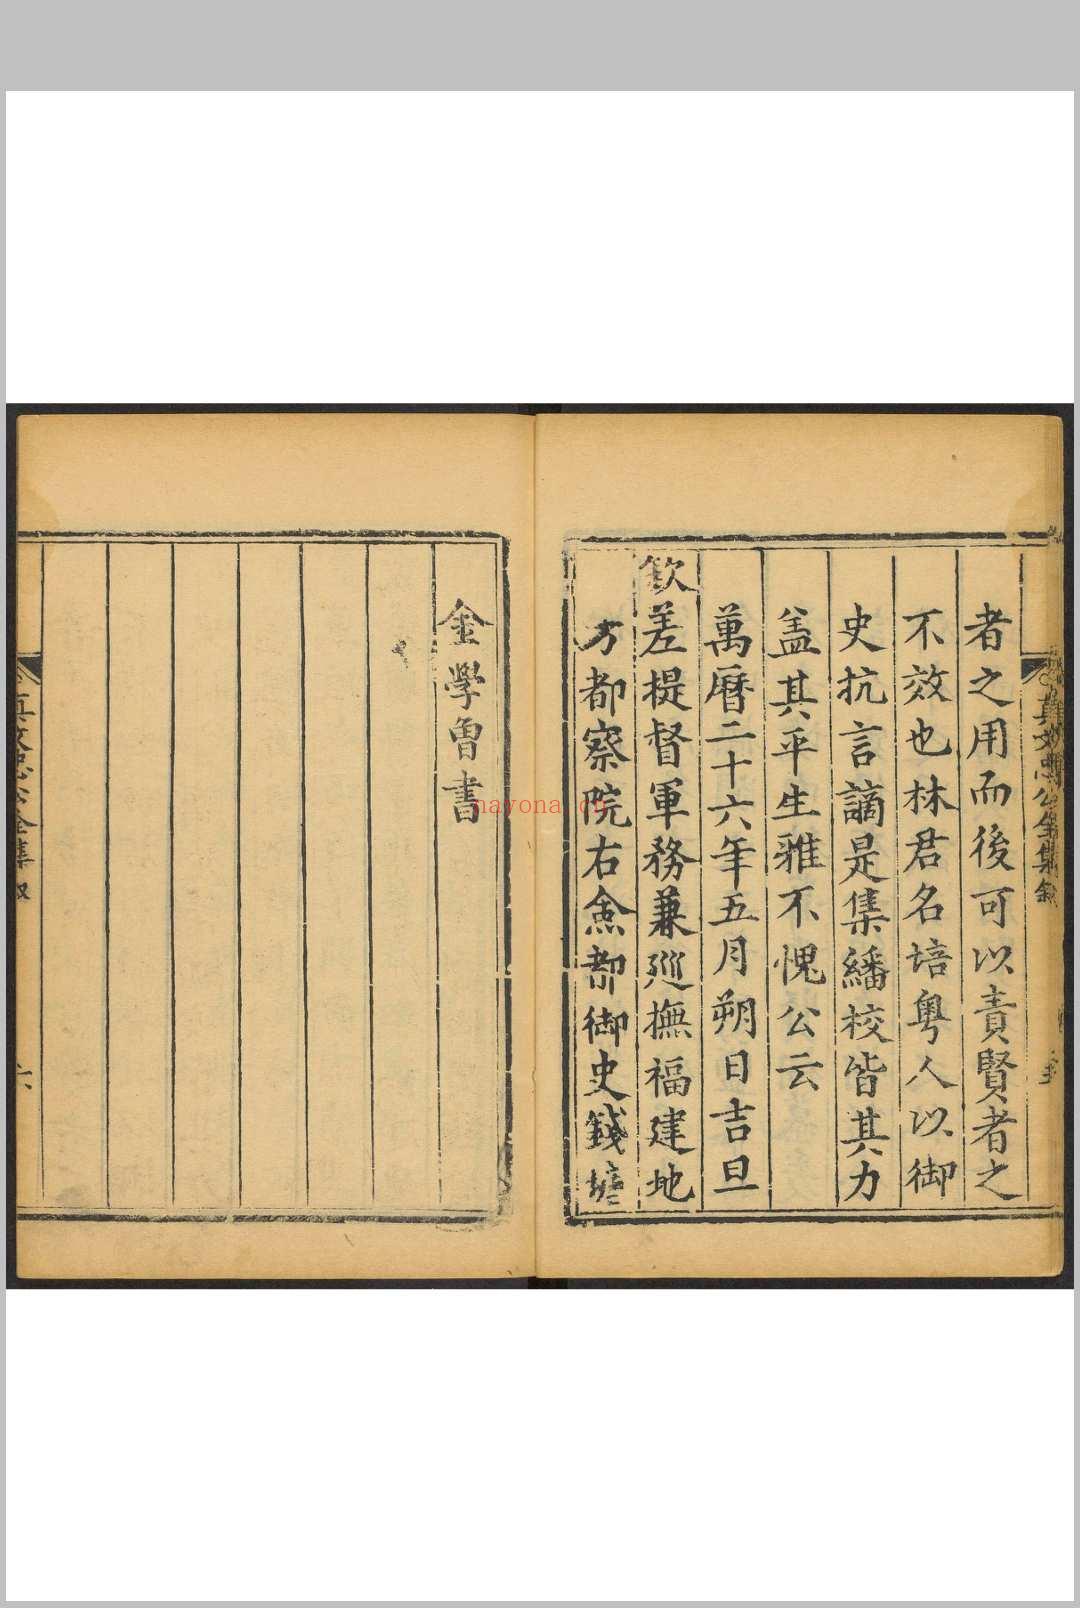 者之用而後可以責賢者之
不效也林君名培粵人以御
史抗言謫是集繙校皆其力
盖其平生雅不愧公云
萬曆二十六年五月朔日吉旦
欽差提督軍務兼巡撫福建地
方都察院右僉都御史錢塘
金學曾書
真文忠公全集叙
六
真文忠公全集叙
nayona.cn